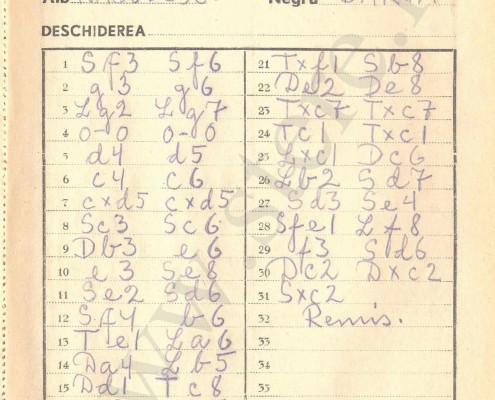 Alb
Negru
DESCHIDEREA
1 Sf3 Sf6
2 g3 g6
3 Lg2 Lg7
4 0-0 0-0
5 d4 d5
6 c4 c6
7 cxd5 cxd5
8 Sc3 Sc6
9 Db3 e6
10 e3 Se8
11 Se2 Sd6
12 Sf4 b6
13 Te1 La6
14 Da4 Lb5
15 Dd1 Tc8
21 Txf1 Sb8
22 De2 De8
23 Txc7 Txc7
24 Tc1 Txc1
25 Lxc1 Dc6
26 Lb2 Sd7
27 Sd3 Se4
28 Sfe1 Lf8
29 f3 Sd6
30 Dc2 Dxc2
31 Sxc2
32 Remis.
33
34
35